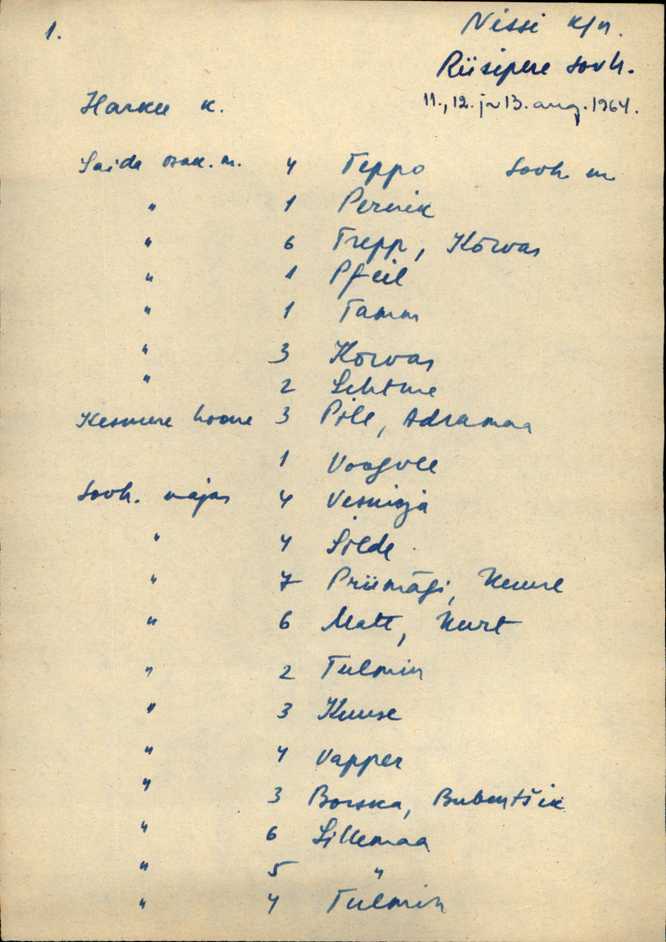 1.
Nissi k/n.
Riisipere sovh.
11., 12. ja 13. aug. 1964.
Harku k.
Laida osak. m. 4 Teppo Sovh m
" 1 Pernik
" 6 Trepp, Kõrvas
" 1 Pfeil
" 1 Tamm
" 3 Kõrvas
" 2 Lehtme
hoone 3 Pill, Adramaa
1 Voogvee
Sovh. majas 4
" 4 Silde
" 7 Priimägi, Kuuse
" 6 Matt, Kurt
" 2 Tulmin
" 3 Kuuse
" 4 Vapper
" 3 Borska, Bubentšik
" 6 Sillemaa
" 5 "
" 4 Tulmin